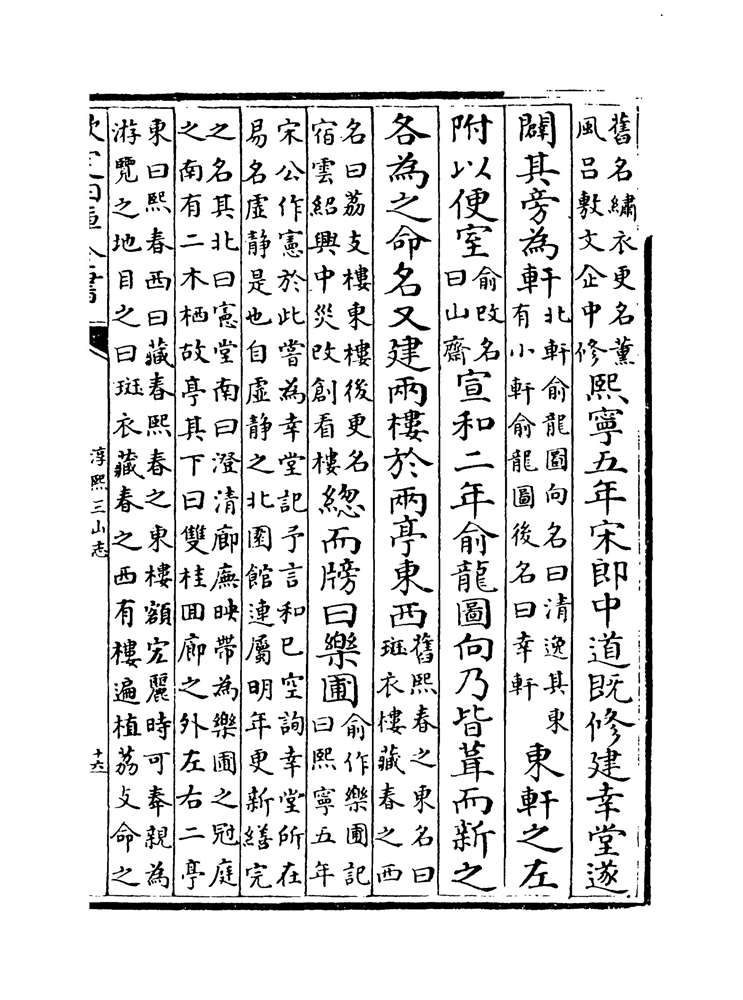 舊名繡衣更名薰風呂敷文企中修熙寧五年宋郎中道既修建幸堂遂
闢其旁為軒北軒俞龍圖向名曰清逸其東有小軒俞龍圖後名曰幸軒東軒之左
附以便室俞改名曰山齋宣和二年俞龍圖向乃皆葺而新之
各為之命名又建兩樓於兩亭東西舊熙春之東名曰斑衣樓藏春之西
名曰荔支樓東樓後更名宿雲紹興中災改創看樓緫而牓曰樂圃俞作樂圃記曰熙寧五年
宋公作憲於此嘗為幸堂記予言和已空詢幸堂所在易名虛静是也自虛静之北園館連屬明年更新繕完
之名其北曰憲堂南曰澄清廊廡映帶為樂圃之冠庭之南有二木栖故亭其下曰雙桂囬廊之外左右二亭
東曰熙春西曰藏春熙春之東樓額宏麗時可奉親為游覽之地目之曰斑衣藏春之西有樓遍植荔支命之
欽定四庫全書
淳熙三山志
十六